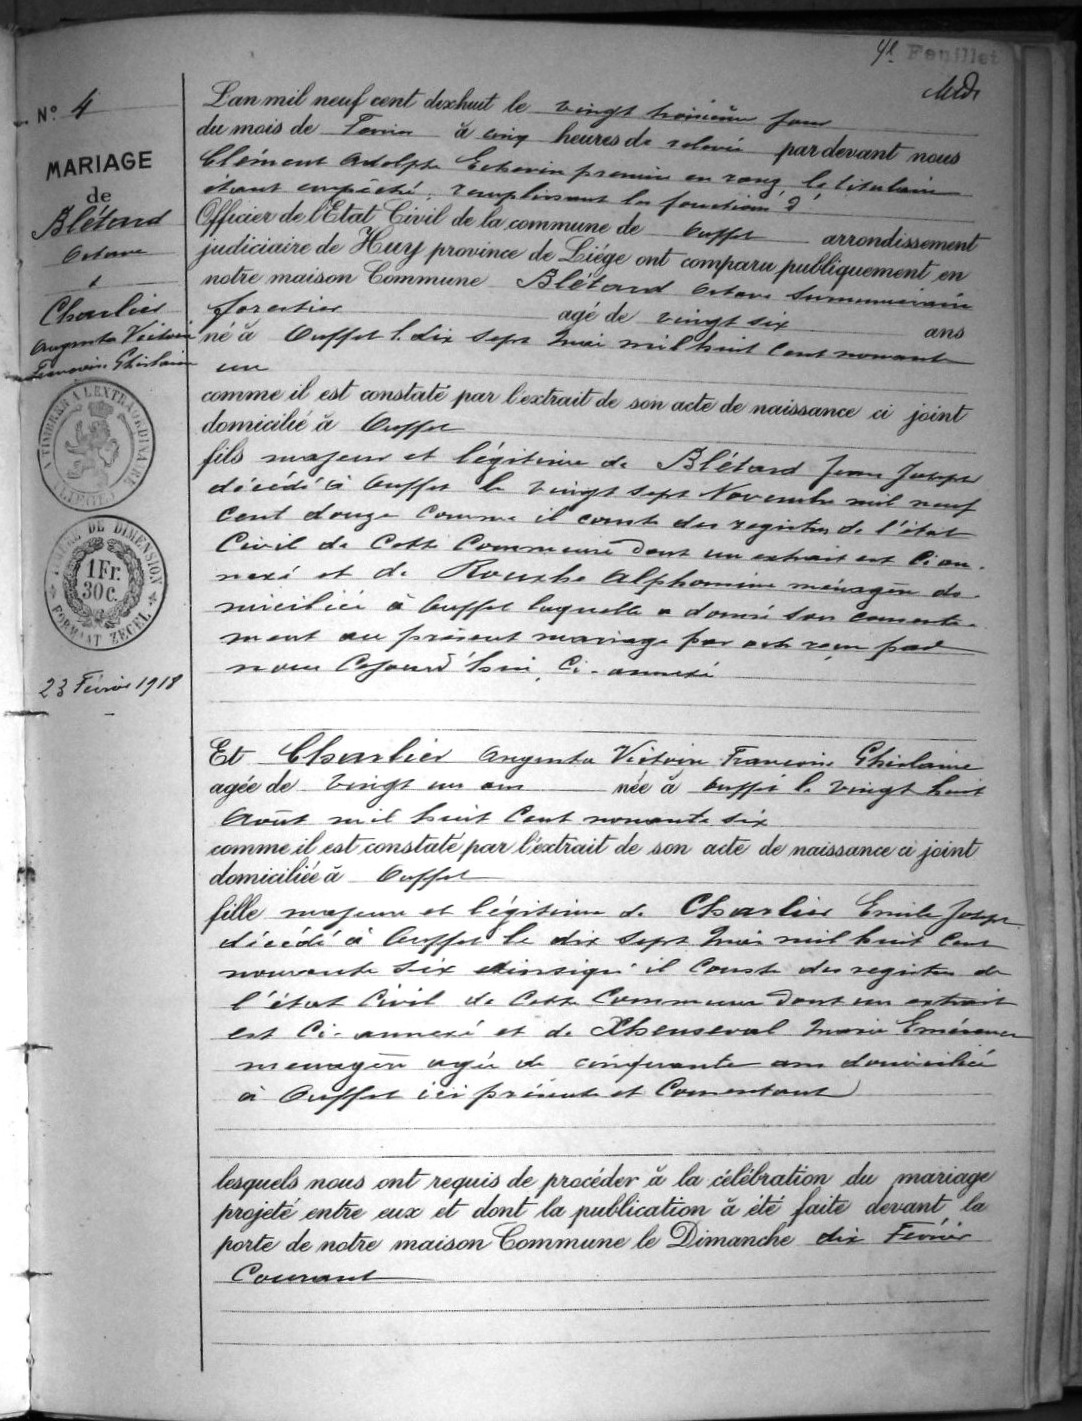 4e Feuillet
N° 4
MARIAGE
de
Blétard
Octave
&
Charlier
Argenta Victoire
Françoise Ghislaine
A TIMBRER A L'EXTRAORDINAIRE
(LIÉGE)
TIMBRE DE DIMENSION
1 Fr.
30 C.
FORMAT ZEGEL
23 Février 1918
L'an mil neuf cent dixhuit le vingt troisième jour
du mois de Fevrier à cinq heures de relevée par devant nous
Clément Adolphe Echevin premier en rang, le titulaire
étant empêché, remplissant les fonctions d'
Officier de l'Etat Civil de la commune de Ouffet arrondissement
judiciaire de Huy province de Liége ont comparu publiquement en
notre maison Commune Blétard Octave surnuméraire
forestier agé de vingt six ans
né à Ouffet le dix sept Mai mil huit cent nonante
un
comme il est constaté par l'extrait de son acte de naissance ci joint
domicilié à Ouffet
fils majeur et légitime de Blétard Jean Joseph
décédé à Ouffet le vingt sept Novembre mil neuf
cent douze comme il conste des registres de l'état
Civil de cette Commune dont un extrait est ci an-
nexé et de Rouxhe Alphonsine ménagère do-
miciliée à Ouffet laquelle a donné son consente-
ment au présent mariage par acte reçu par
nous Cejourd'hui, ci-annexé
Et Charlier Argenta Victoire Françoise Ghislaine
agée de vingt un ans née à Ouffet le vingt huit
Août mil huit cent nonante six
comme il est constaté par l'extrait de son acte de naissance ci joint
domiciliée à Ouffet
fille majeure et légitime de Charlier Emile Joseph
décédé à Ouffet le dix sept Mai mil huit cent
nonante six ainsiqu'il conste des registres de
l'état Civil de cette Commune dont un extrait
est ci-annexé et de Xhenseval Marie Emérence
menagère agée de cinquante ans domiciliée
à Ouffet ici présente et consentant
lesquels nous ont requis de procéder à la célébration du mariage
projeté entre eux et dont la publication à été faite devant la
porte de notre maison Commune le Dimanche dix Février
Courant